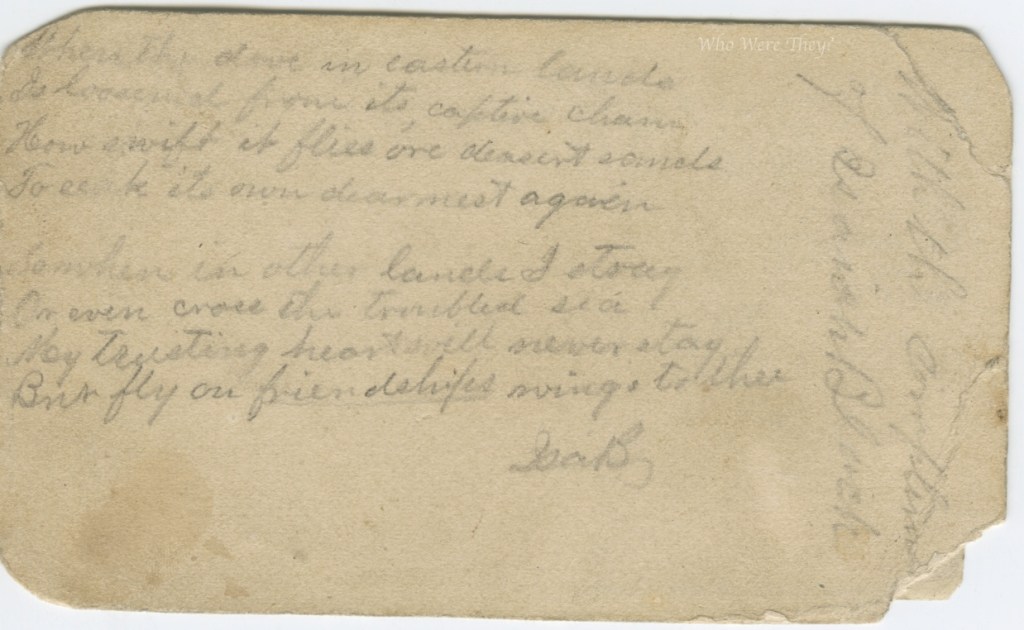 Who Were They?
When the dove in eastern lands
Is loosened from its captive chain
How swift it flies o're deasert sands
To seek its own dearnest again
So when in other lands I stray
Or even cross the troubled sea
My trusting heart will never stay
But fly on friendships wings to thee
Isa B
With the compliments
of Isaiah Black